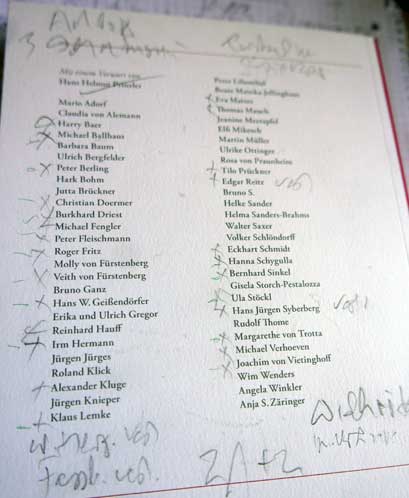 Mit einem Vorwort von
Hans Helmut Prinzler
Mario Adorf
Claudia von Alemann
Harry Baer
Michael Ballhaus
Barbara Baum
Ulrich Bergfelder
Peter Berling
Hark Bohm
Jutta Brückner
Christian Doermer
Burkhard Driest
Michael Fengler
Peter Fleischmann
Roger Fritz
Molly von Fürstenberg
Veith von Fürstenberg
Bruno Ganz
Hans W. Geißendörfer
Erika und Ulrich Gregor
Reinhard Hauff
Irm Hermann
Jürgen Jürges
Roland Klick
Alexander Kluge
Jürgen Knieper
Klaus Lemke
Peter Lilienthal
Beate Mainka-Jellinghaus
Eva Mattes
Thomas Mauch
Jeanine Meerapfel
Elfi Mikesch
Martin Müller
Ulrike Ottinger
Rosa von Praunheim
Tilo Prückner
Edgar Reitz
Bruno S.
Helke Sander
Helma Sanders-Brahms
Walter Saxer
Volker Schlöndorff
Eckhart Schmidt
Hanna Schygulla
Bernhard Sinkel
Gisela Storch-Pestalozza
Ula Stöckl
Hans Jürgen Syberberg
Rudolf Thome
Margarethe von Trotta
Michael Verhoeven
Joachim von Vietinghoff
Wim Wenders
Angela Winkler
Anja S. Zäringer